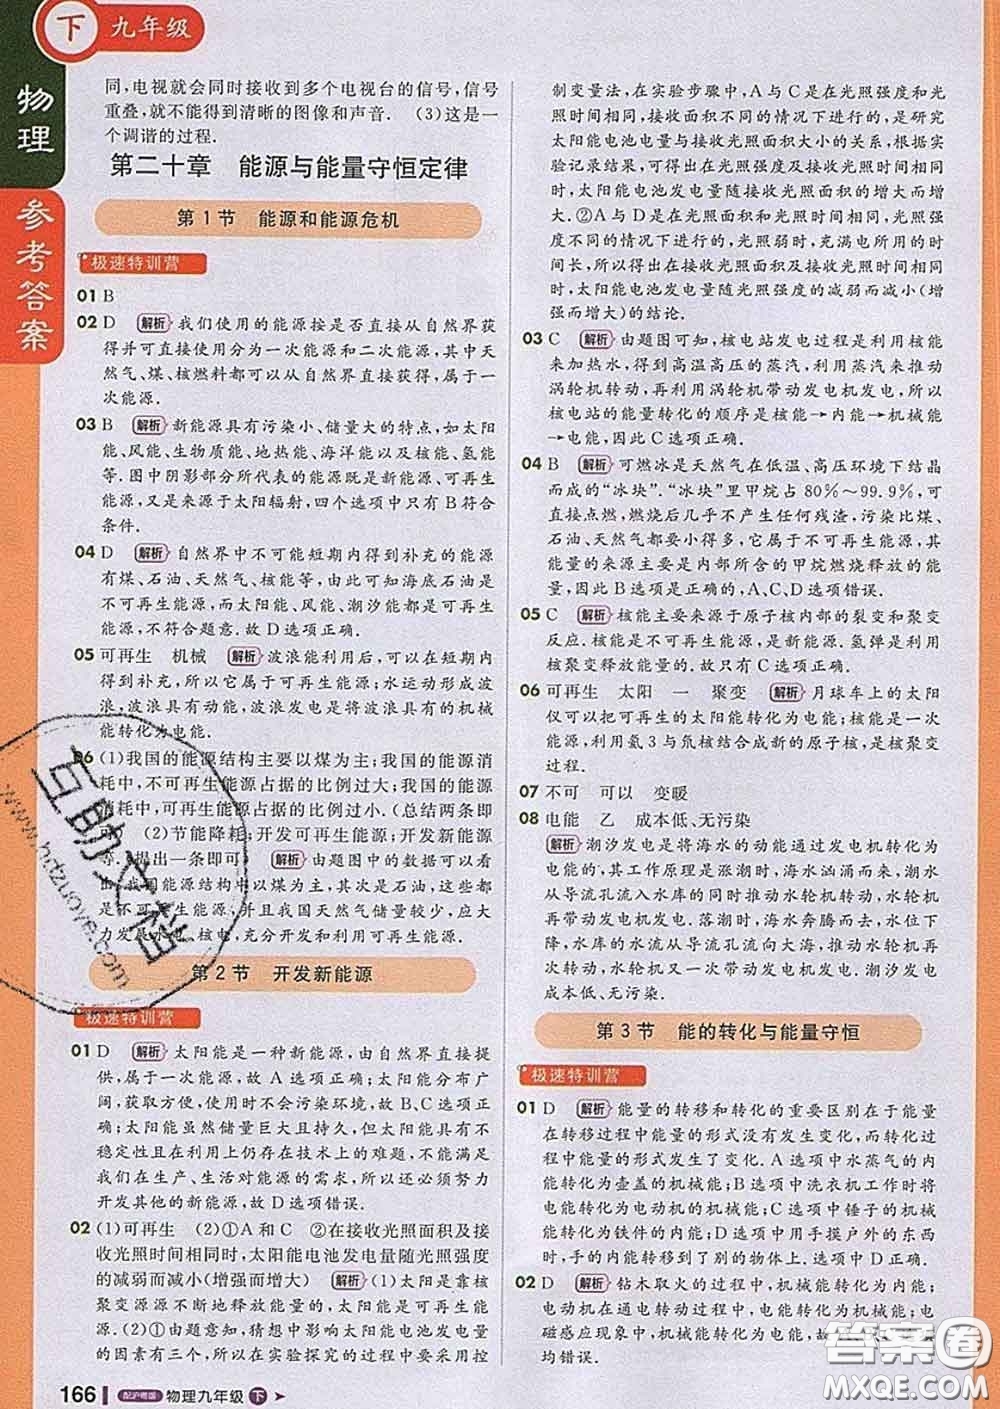 下 九年级
物理
参考答案
同,电视就会同时接收到多个电视台的信号,信号
重叠,就不能得到清晰的图像和声音. (3)这是一
个调谐的过程.
第二十章 能源与能量守恒定律
第1节 能源和能源危机
极速特训营
01 B
02 D 解析 我们使用的能源按是否直接从自然界获
得并可直接使用分为一次能源和二次能源,其中天
然气、煤、核燃料都可以从自然界直接获得,属于一
次能源.
03 B 解析 新能源具有污染小、储量大的特点,如太阳
能、风能、生物质能、地热能、海洋能以及核能、氢能
等.图中阴影部分所代表的能源既是新能源、可再生
能源,又是来源于太阳辐射,四个选项中只有B符合
条件.
04 D 解析 自然界中不可能短期内得到补充的能源
有煤、石油、天然气、核能等,因此可知海底石油是
不可再生能源,而太阳能、风能、潮汐能都是可再生
能源,不符合题意.故D选项正确.
05 可再生 机械 解析 波浪能利用后,可以在短期内
得到补充,所以它属于可再生能源;水运动形成波
浪,波浪具有动能,波浪发电是将波浪具有的机械
能转化为电能.
06 (1)我国的能源结构主要以煤为主;我国的能源消
耗中,不可再生能源占据的比例过大;我国的能源消
耗中,可再生能源占据的比例过小.(总结两条即
可) (2)节能降耗;开发可再生能源;开发新能源
等.(提出一条即可) 解析 由题图中的数据可以看
出,我国能源结构中以煤为主,其次是石油,这些都
是不可再生能源,并且我国天然气储量较少,应大
力发展水电、核电,充分开发和利用可再生能源.
第2节 开发新能源
极速特训营
01 D 解析 太阳能是一种新能源,可为人类提供
各种形式的能量,故A选项正确;太阳能分布广
阔,获取方便,使用太阳能不会污染环境,故B、C选
项正确;太阳能虽然储量巨大且持久,但太阳能的不
稳定性等利用上仍存在技术上的难题,不能无限利
用,我们在生产、生活对能源的需求,还必须不断努力
开发其他的新能源,故D选项错误.
02 (1)可再生 (2)①A和C ②在接收光照面积及接
收光照时间相同时,太阳能电池发电量随光照强度
的减弱而减小(增强而增大) 解析 (1)太阳是靠核
聚变源源不断地释放能量,太阳能是可再生能
源.(2)①由题意知,猜想中影响太阳能电池发电量
的因素有三个,所以在实验探究的过程中要采用控
制变量法,在实验步骤中,A与C是在光照强度和光
照时间相同时,接收光照面积不同的情况,是研究
太阳能电池电量与接收面积大小的关系,根据实
验记录结果,可得出在光照强度及接收光照时间
相同时,太阳能电池发电量随接收光照面积的增大而
增大.②A与D是在光照面积和时间相同,光照强
度不同的情况下研究,光照弱时,充满电所用的时
间长,所以得出在接收光照面积及接收光照时间相
同时,太阳能电池发电量随光照强度的减弱而减小(增
强而增大)的结论.
03 C 解析 由题图可知,核电站发电过程是利用核能
来加热水,得到高温高压的蒸汽,利用蒸汽来推动
涡轮机转动,再利用涡轮机带动发电机发电,所以
核电站的能量转化的顺序是核能→内能→机械能
→电能,因此C选项正确.
04 B 解析 可燃冰是天然气在低温、高压环境下结晶
而成的“冰块”.“冰块”里甲烷占80%~99.9%,可
直接点燃,燃烧后几乎不产生任何残渣,污染比煤、
石油、天然气都要小得多,它属于不可再生能源,其
能量的来源主要是内部所含的甲烷燃烧释放的能
量,因此B选项是正确的,A、C、D选项错误.
05 C 解析 核能主要来源于原子核内部的裂变和聚变
反应.核能不可再生能源,是新能源.氢弹是利用
核聚变释放能量的.故只有C选项正确.
06 可再生 太阳 一 聚变 解析 月球车上的太阳
仪可以把可再生的太阳能转化为电能;核能是一次
能源,利用氦3与氘核结合成新的原子核,是核聚变
过程.
07 不可 可以 变暖
08 电能 乙 成本低、无污染
解析 潮汐发电是将海水的动能通过发电机转化为
电能的;其工作原理是涨潮时,海水汹涌而来,水
从江河流入水库的同时推动水轮机转动,水轮机
再带动发电机发电.落潮时,海水奔腾而去,水位下
降,水库的水流从江河流向大海,推动水轮机再次
转动,水轮机又一次带动发电机发电.潮汐发电
成本低、无污染.
第3节 能的转化与能量守恒
极速特训营
01 D 解析 能量的转移和转化的重要区别在于能量
在转移过程中能量的形式没有发生变化,而转化过
程中能量的形式发生了变化.A选项中水蒸气的内
能转化为壶盖的机械能;B选项中洗衣机工作时将
电能转化为电动机的机械能;C选项中锤子的机械
能转化为铁件的内能;D选项中用手摸户外的东西
时,手的内能转移到了别的物体上.选项中D正确.
02 D 解析 钻木取火的过程中,机械能转化为内能;
电动机在通电转动过程中,电能转化为机械能;电
磁感应现象中,机械能转化为电能,故
均错误.
166 配沪粤版 物理九年级 下
互助文档
www.hdzuoye.com
答案圈
MXQE.COM